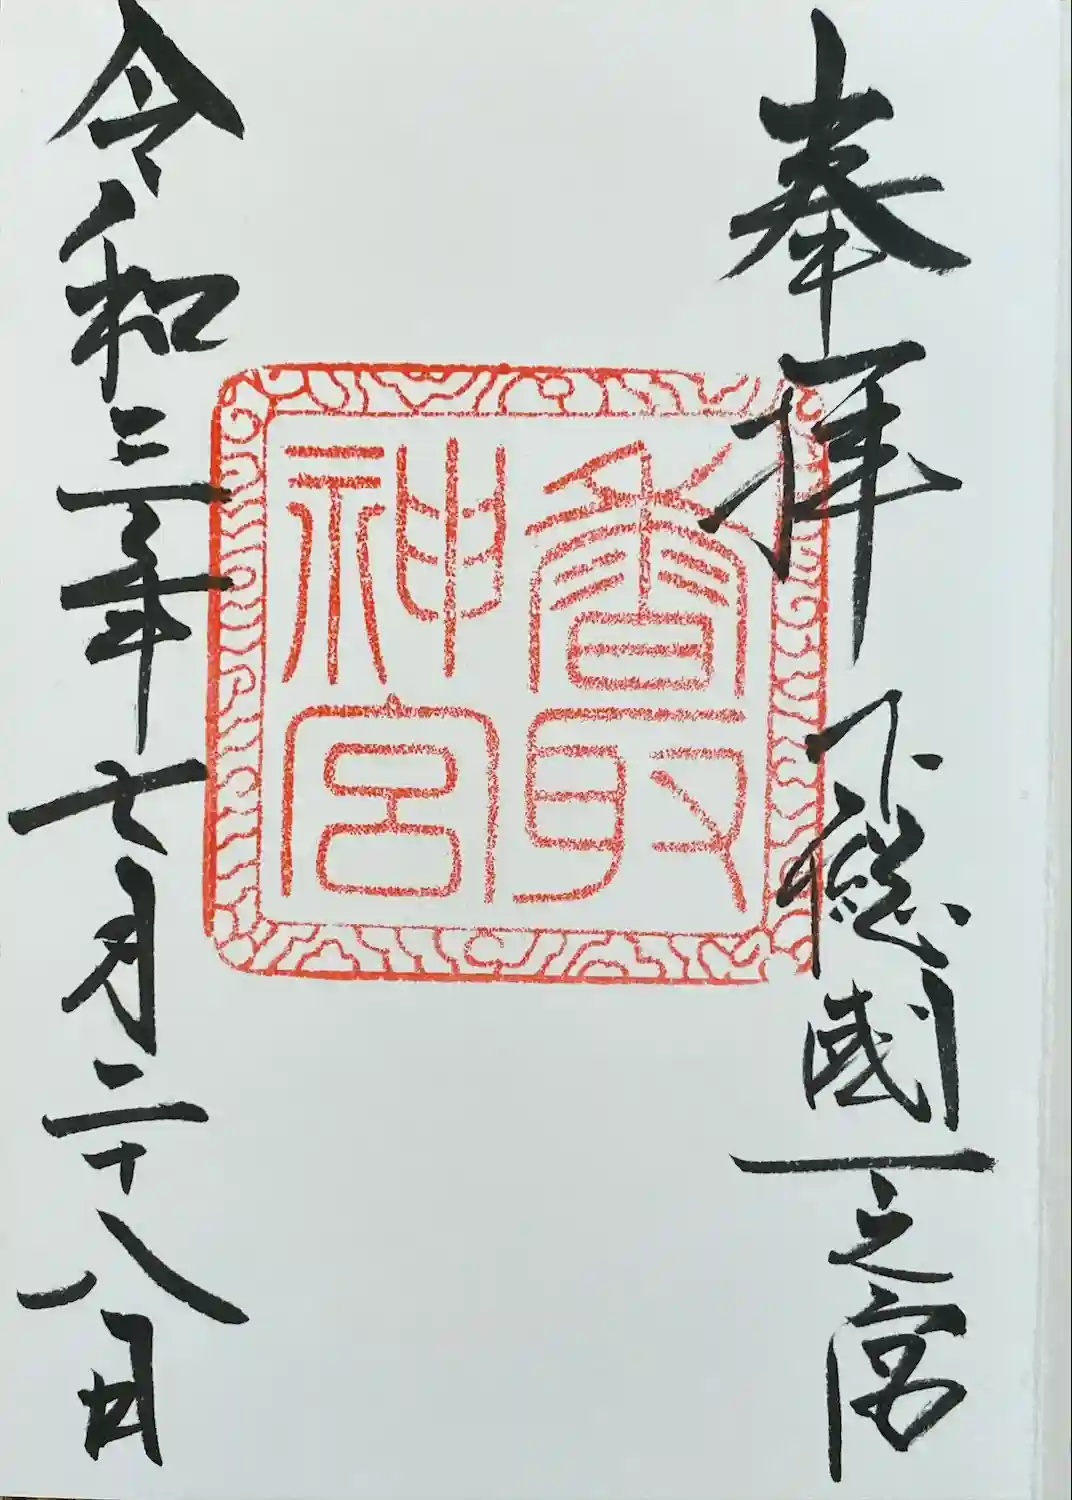 奉拝 下總國一之宮
香取
神宮
令和三年七月二十八日